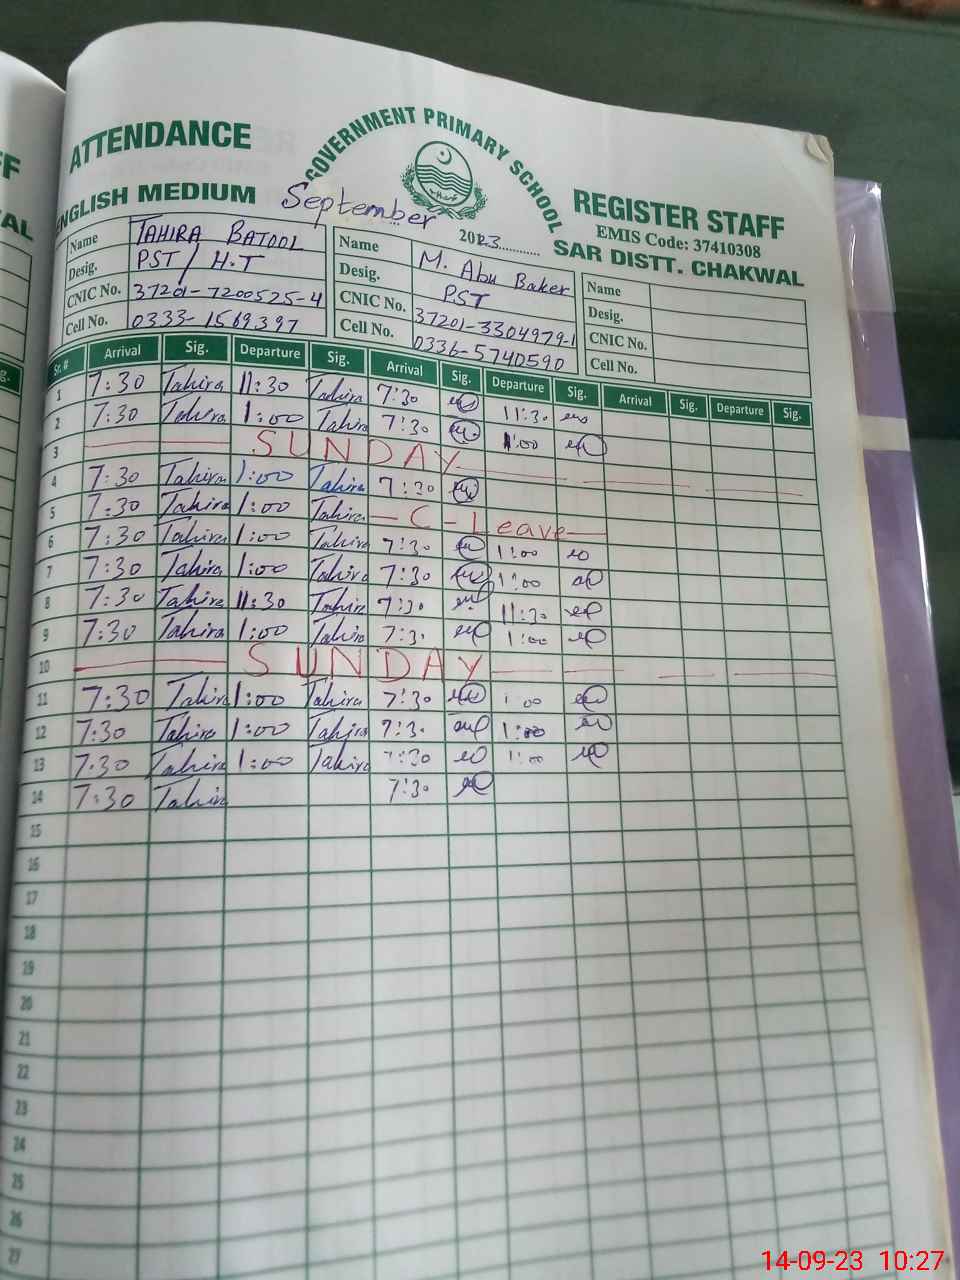 ATTENDANCE
GOVERNMENT PRIMARY SCHOOL
REGISTER STAFF
ENGLISH MEDIUM
September 2023
EMIS Code: 37410308
SAR DISTT. CHAKWAL
Name TAHIRA BATOOL Name M. Abu Baker Name
Desig. PST / H.T Desig. PST Desig.
CNIC No. 37201-7200525-4 CNIC No. 37201-3304979-1 CNIC No.
Cell No. 0333-1569397 Cell No. 0336-5740590 Cell No.
Sr.# Arrival Sig. Departure Sig. Arrival Sig. Departure Sig. Arrival Sig. Departure Sig.
1 7:30 Tahira 11:30 Tahira 7:30 11:30
2 7:30 Tahira 1:00 Tahira 7:30 1:00
3 SUNDAY
4 7:30 Tahira 1:00 Tahira 7:30
5 7:30 Tahira 1:00 Tahira - C - Leave
6 7:30 Tahira 1:00 Tahira 7:30 1:00
7 7:30 Tahira 1:00 Tahira 7:30 1:00
8 7:30 Tahira 11:30 Tahira 7:30 11:30
9 7:30 Tahira 1:00 Tahira 7:30 1:00
10 SUNDAY
11 7:30 Tahira 1:00 Tahira 7:30 1:00
12 7:30 Tahira 1:00 Tahira 7:30 1:00
13 7:30 Tahira 1:00 Tahira 7:30 1:00
14 7:30 Tahira 7:30
15
16
17
18
19
20
21
22
23
24
25
26
27
14-09-23 10:27